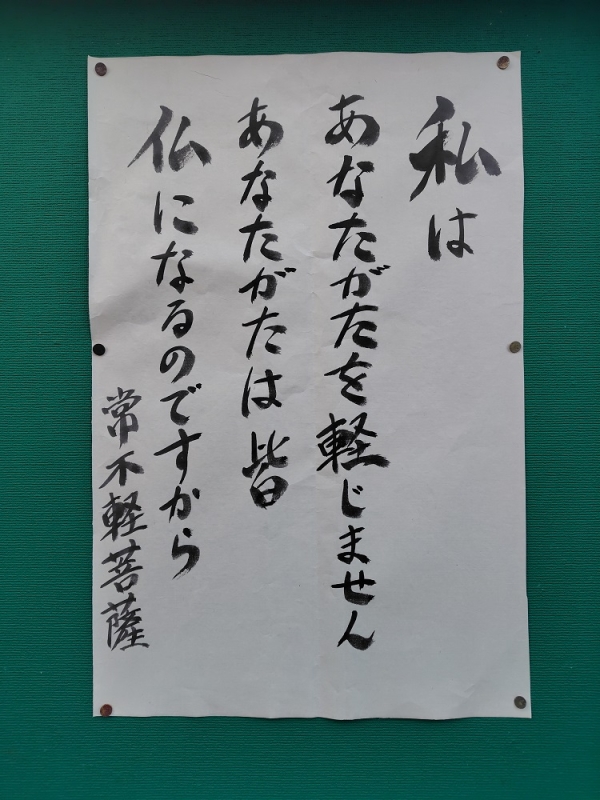 私は
あなたがたを軽じません
あなたがたは皆
仏になるのですから
常不軽菩薩